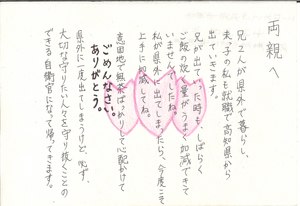 両親へ
兄２人が県外で暮らし、
末っ子の私も就職で高知県から
出ていきます。
兄が出ていった時も、しばらく
ご飯の炊く量がうまく加減できて
いませんでしたね。
私が県外へ出てしまったら、今度こそ
上手に加減してね。
意固地で無茶ばっかりして心配かけて
ごめんなさい。
ありがとう。
県外に一度出てしまうけど、必ず、
大切な守りたい人々を守り抜くことの
できる自衛官になって帰ってきます。